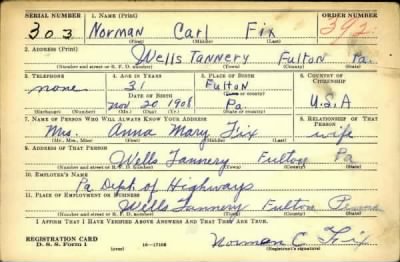 SERIAL NUMBER 1. NAME (Print) ORDER NUMBER
303 Norman Carl Fix 392
(First) (Middle) (Last)
2. ADDRESS (Print)
Wells Tannery Fulton Pa.
(Number and street or R. F. D. number) (Town) (County) (State)
3. TELEPHONE 4. AGE IN YEARS 5. PLACE OF BIRTH 6. COUNTRY OF CITIZENSHIP
none 31 Fulton
DATE OF BIRTH (Town or county)
Nov 20 1908 Pa. U.S.A
(Exchange) (Number) (Mo.) (Day) (Yr.) (State or country)
7. NAME OF PERSON WHO WILL ALWAYS KNOW YOUR ADDRESS 8. RELATIONSHIP OF THAT PERSON
Mrs. Anna Mary Fix wife
(Mr., Mrs., Miss) (First) (Middle) (Last)
9. ADDRESS OF THAT PERSON
Wells Tannery Fulton Pa
(Number and street or R. F. D. number) (Town) (County) (State)
10. EMPLOYER'S NAME
Pa Dept. of Highways
11. PLACE OF EMPLOYMENT OR BUSINESS
Wells Tannery Fulton Penna
(Number and street or R. F. D. number) (Town) (County) (State)
I AFFIRM THAT I HAVE VERIFIED ABOVE ANSWERS AND THAT THEY ARE TRUE.
REGISTRATION CARD
D. S. S. FORM 1 (over) 16—17105 Norman C. Fix
(Registrant's signature)